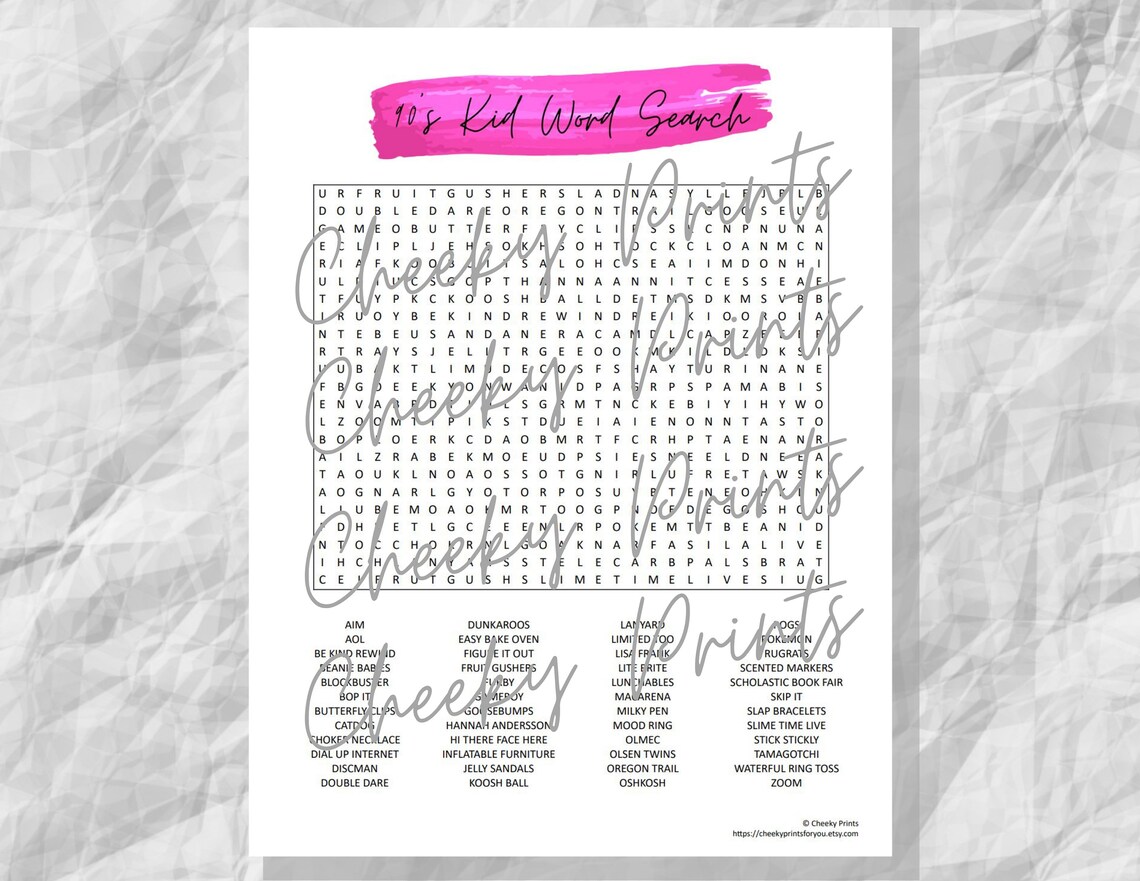 90's Kid Word Search
U R F R U I T G U S H E R S L A D N A S Y L L E J B L B
D O U B L E D A R E O R E G O N T R A I L G O O S E U E
G A M E O B U T T E R F L Y C L I P S S L C N P N U N A
E C L I P L J E H S O K H S O H T O C K C L O A N M C N
R I A F K O O B C I T S A L O H C S E A I I M D O N H I
C S G O P T H A N N A A N N I T C E S S E A E
Y P K C K O O S H B A L L D E T M S D K M S V B B
R U O Y B E K I N D R E W I N D K I O O R O I A
N T E B E U S A N D A N E R A C A M
R T R A Y S J E L L T R G E E O O K M K I L D
B A K T L I M D E C O S F S H A Y T U R I N A N E
F B G O E E K Y O N W A N I D P A S R P S P A M A B I S
E N V A L S G R M T N C K E B I Y I H Y W O
L Z O O M T P I K S T D U E I A I E N O N N T A S T O
B O P O E R K C D A O B M R T F C R H P T A E N A N R
A I L Z R A B E K M O E U D P S I E S N E E L D N E E A
T A O U K L N O A O S S O T G N I R L U F R E T A W S K
A O G N A R L G Y O T O R P O S U
L I U B E M O A O K M R T O O G P
D H E T L G C E E N L R P O K E M T T B E A N I D
N T O C C H O K R N L G O A K N A R F A S I L A L I V E
I H C H N Y S S T E L E C A R B P A L S B R A T
C E F R U T G U S H S L I M E T I M E L I V E S I U G
AIM
AOL
BE KIND REWIND
BEANIE BABIES
BLOCKBUSTER
BOP IT
BUTTERFLY CLIPS
CATDOG
CHOKER NECKLACE
DIAL UP INTERNET
DISCMAN
DOUBLE DARE
DUNKAROOS
EASY BAKE OVEN
FIGURE IT OUT
FRUIT GUSHERS
FURBY
GAMEBOY
GOOSEBUMPS
HANNAH ANDERSSON
HI THERE FACE HERE
INFLATABLE FURNITURE
JELLY SANDALS
KOOSH BALL
LANYARD
LIMITED TOO
LISA FRANK
LITE BRITE
LUNCHABLES
MACARENA
MILKY PEN
MOOD RING
OLMEC
OLSEN TWINS
OREGON TRAIL
OSHKOSH
POGS
POKEMON
RUGRATS
SCENTED MARKERS
SCHOLASTIC BOOK FAIR
SKIP IT
SLAP BRACELETS
SLIME TIME LIVE
STICK STICKLY
TAMAGOTCHI
WATERFUL RING TOSS
ZOOM
Cheeky Prints
Cheeky Prints
Cheeky Prints
Cheeky Prints
© Cheeky Prints
https://cheekyprintsforyou.etsy.com